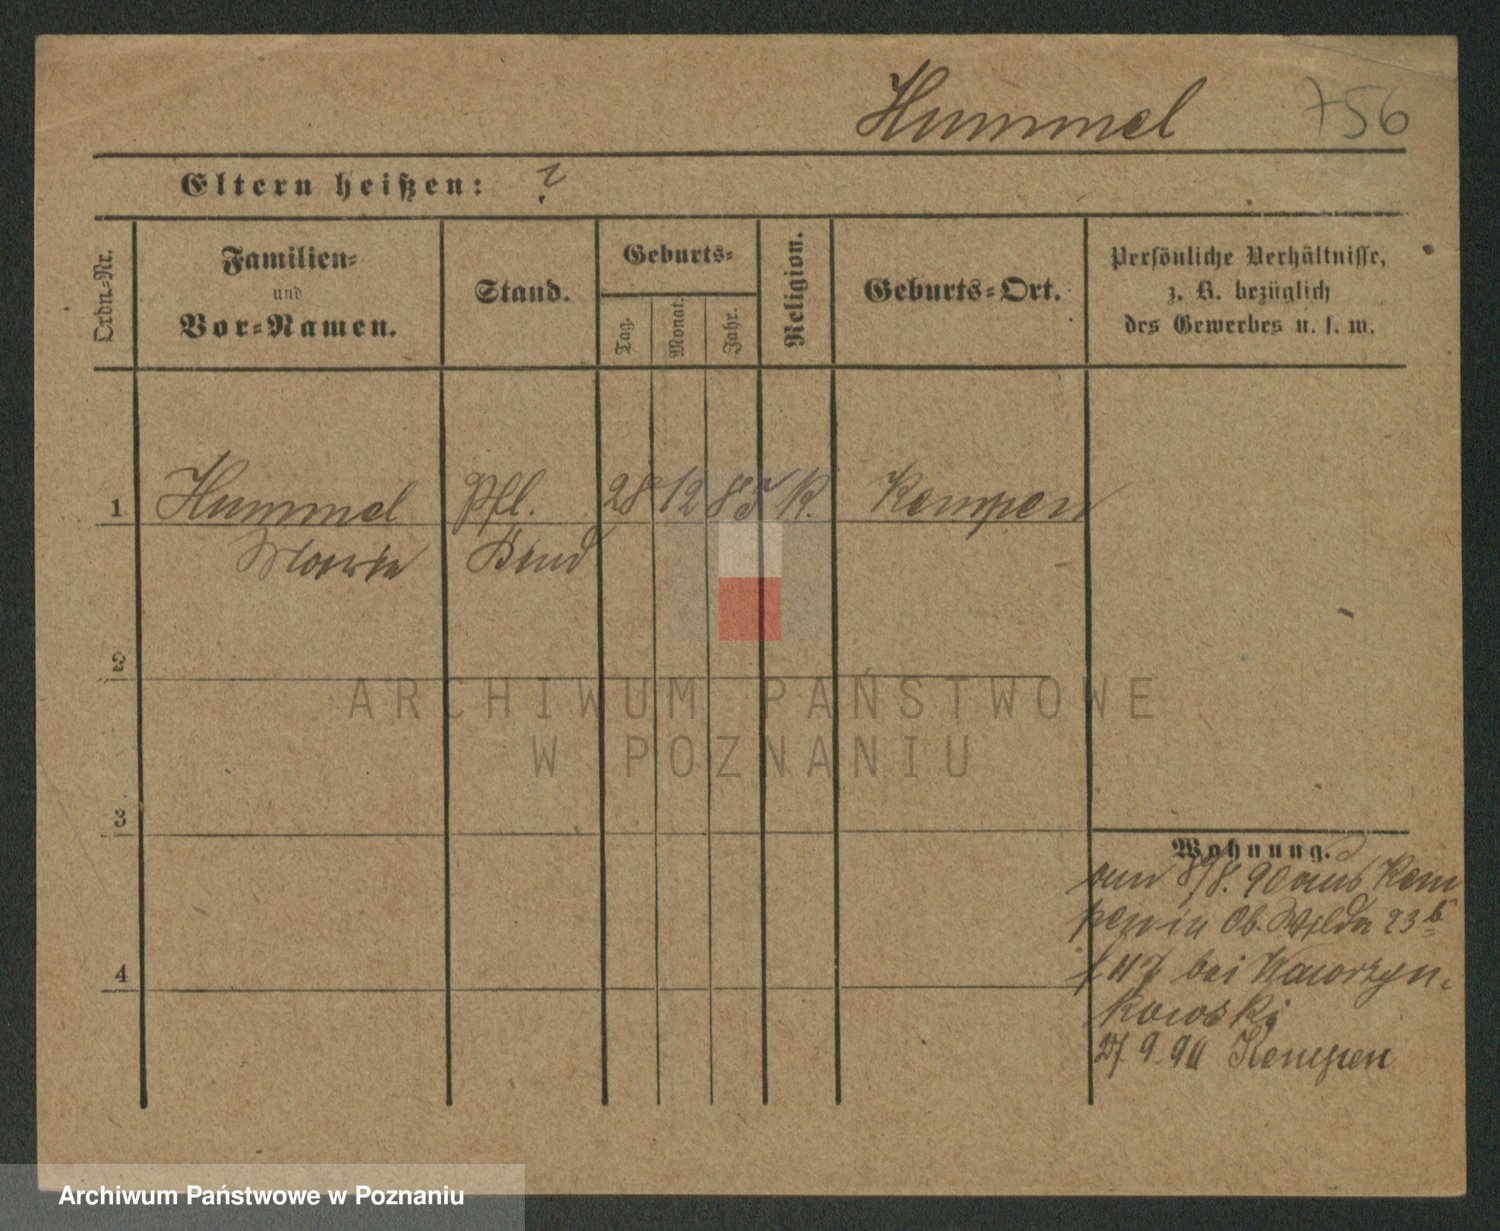 Hummel 756
Eltern heißen: ?
Ordn.-Nr.
Familien-
und
Vor-Namen.
Stand.
Geburts-
Tag.
Monat.
Jahr.
Religion.
Geburts-Ort.
Persönliche Verhältnisse,
z. B. bezüglich
des Gewerbes u. s. w.
1 Hummel Pfl. 28 12 85 K. Kempen
Marie Kind
2
3
4
Wohnung.
am 8/8. 90 aus Kem
pen in Ob. Wilda 23 b
bei Wawrzyn-
kowski
9. 90 Kempen
ARCHIWUM PAŃSTWOWE
W POZNANIU
Archiwum Państwowe w Poznaniu